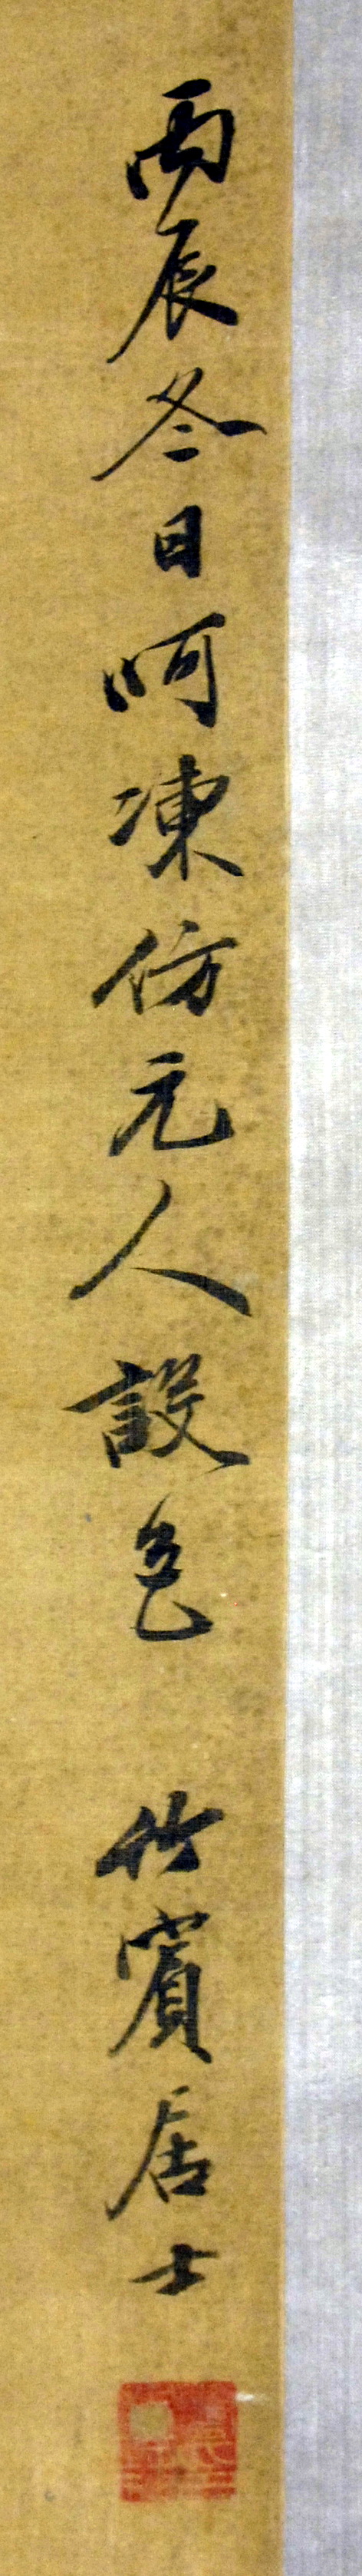 丙辰冬日呵凍仿元人設色 竹賓居士